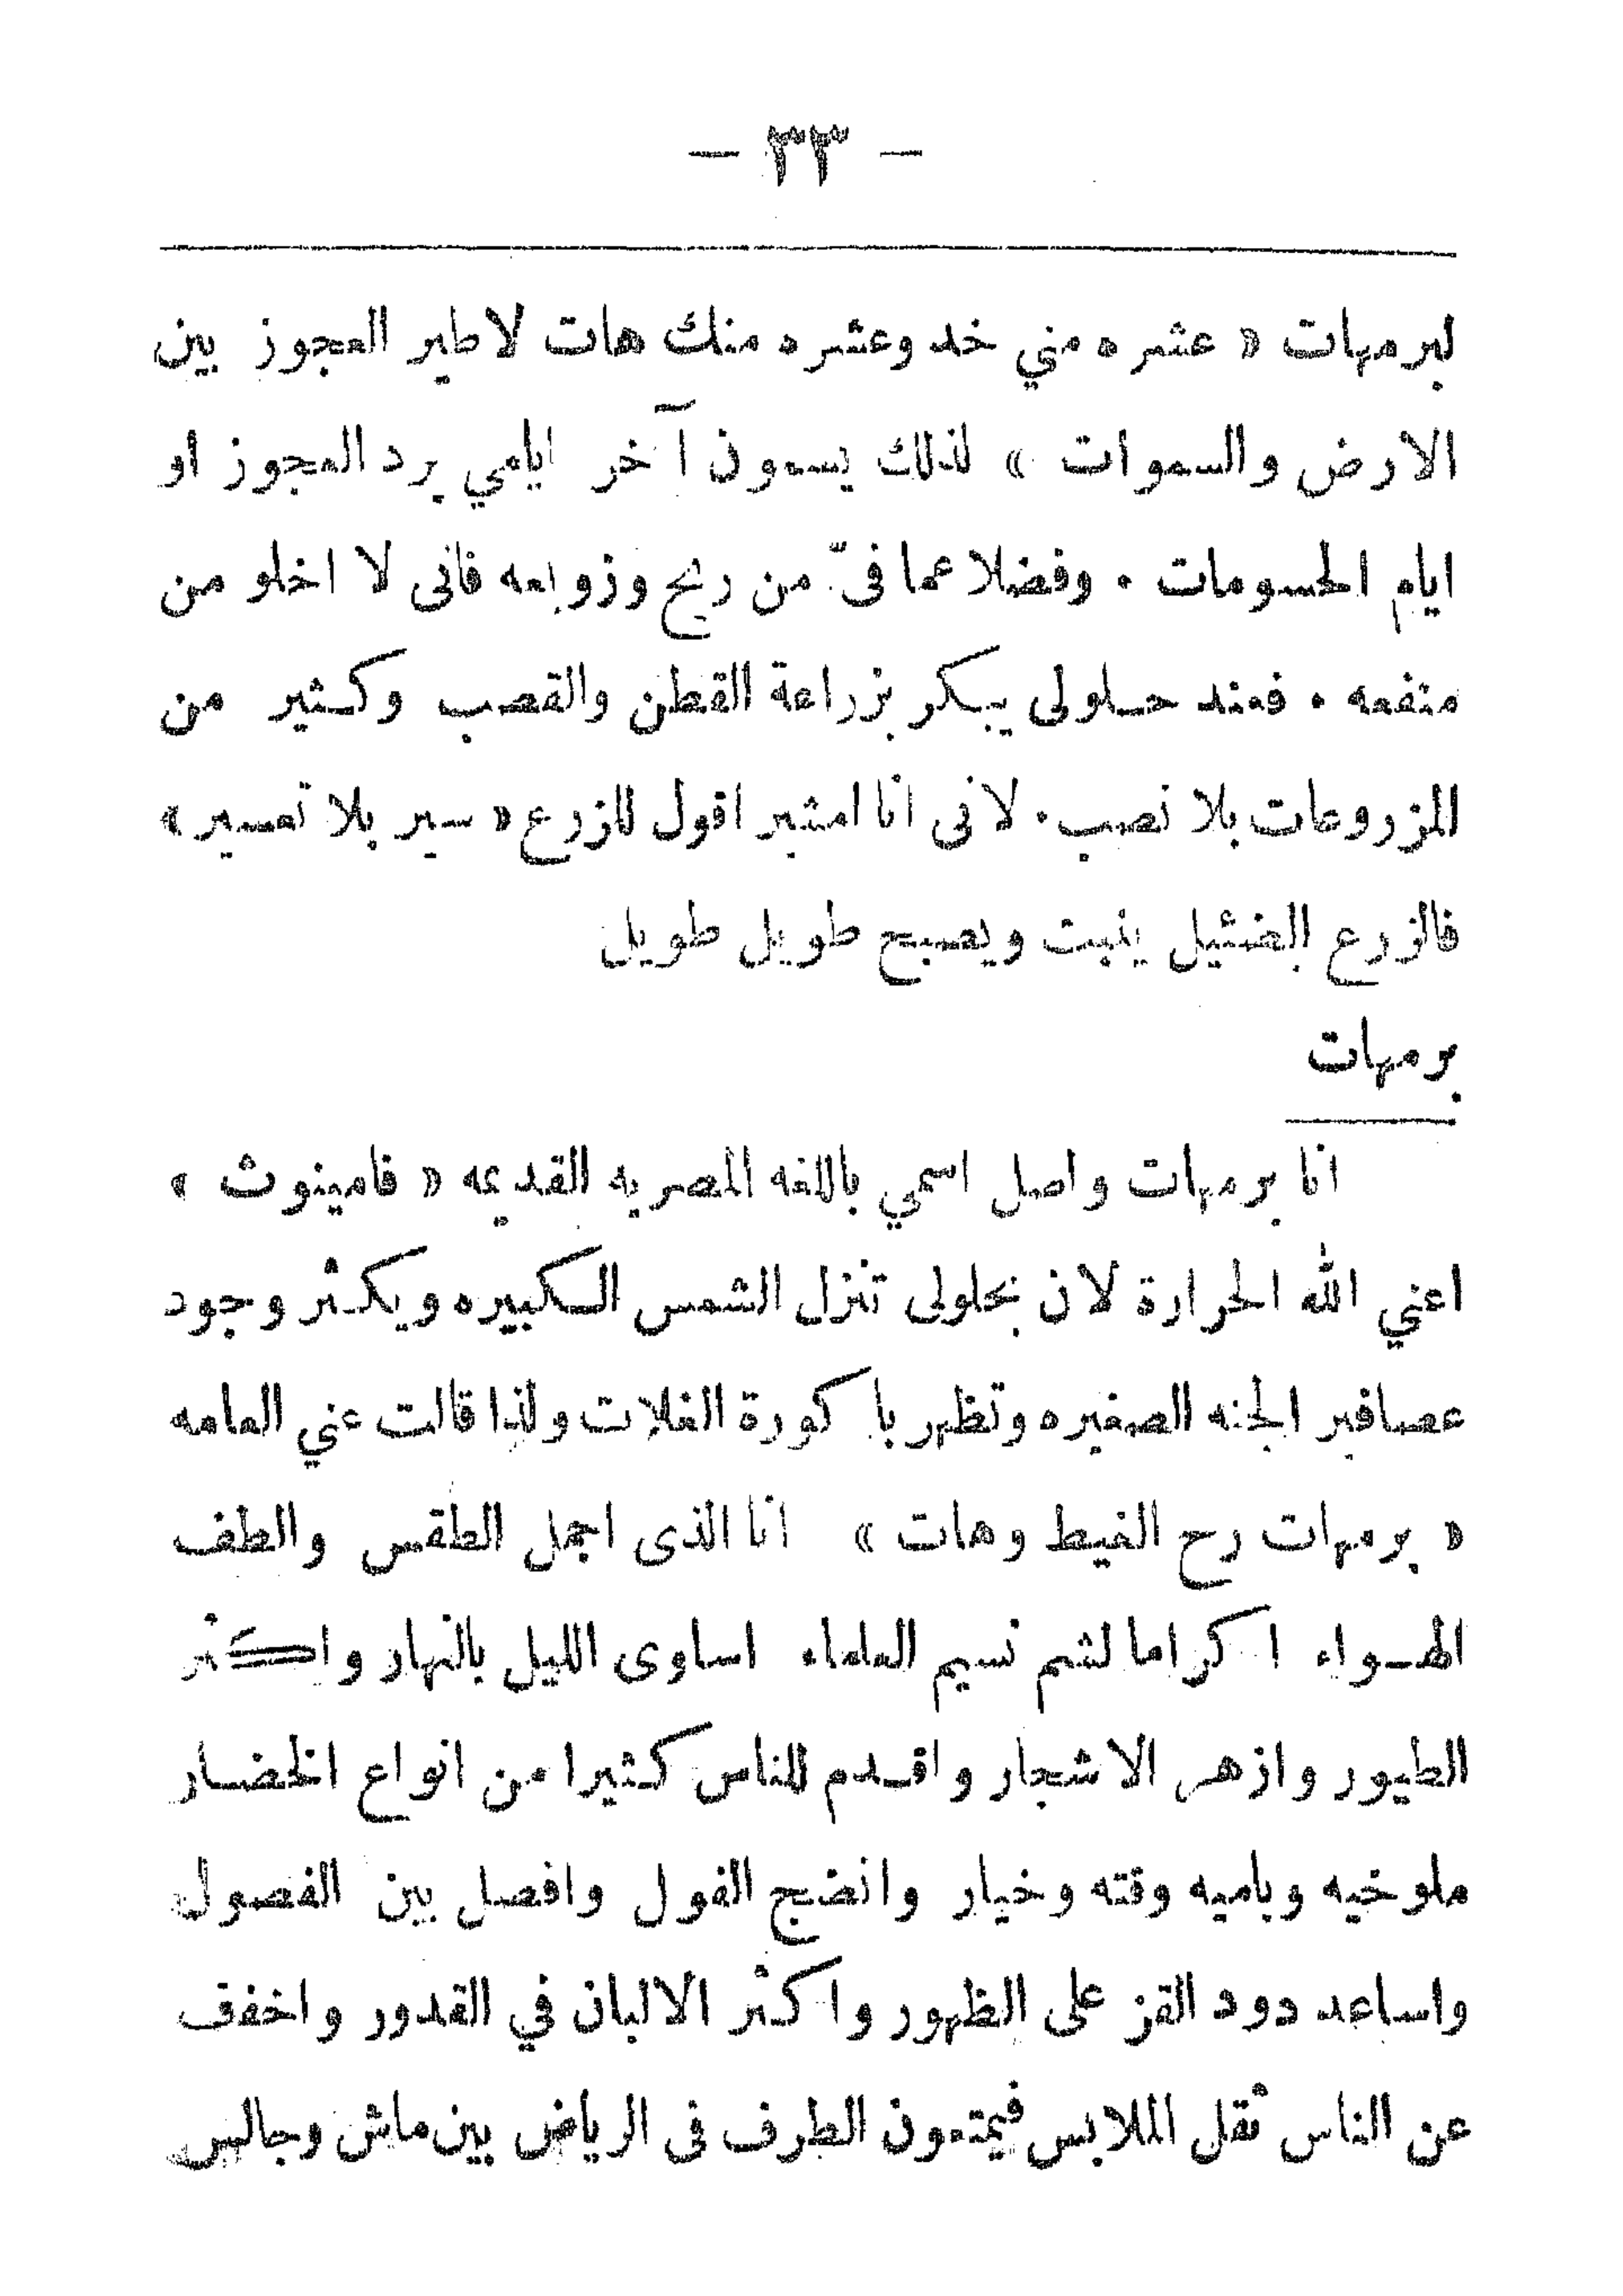 — ٣٣ —
لبرمهات « عشره مني خد وعشره منك هات لاطير العجوز بين
الارض والسموات » لذلك يسمون آخر ايامي برد العجوز او
ايام الحسومات . وفضلا عما فىّ من ريح وزوابعه فانى لا اخلو من
منفعه . فعند حلولى يبكر بزراعة القطن والقصب وكثير من
المزروعات بلا نصب . لانى انا امشير اقول للزرع « سير بلا تعسير »
فالزرع الضئيل ينبت ويصبح طويل طويل
برمهات
انا برمهات واصل اسمي باللغه المصريه القديمه « فامينوث »
اعني الله الحرارة لان بحلولى تنزل الشمس الكبيره ويكثر وجود
عصافير الجنه الصغيره وتظهر باكورة الغلات ولذا قالت عني العامه
« برمهات رح الغيط وهات » انا الذى اجمل الطقس والطف
الهواء اكراما لشم نسيم العلماء اساوى الليل بالنهار واكثر
الطيور وازهر الاشجار واقدم للناس كثيرا من انواع الخضار
ملوخيه وباميه وقته وخيار وانضج الفول وافصل بين الفصول
واساعد دود القز على الظهور واكثر الالبان في القدور واخفف
عن الناس ثقل الملابس فيمتعون الطرف فى الرياض بين ماش وجالس